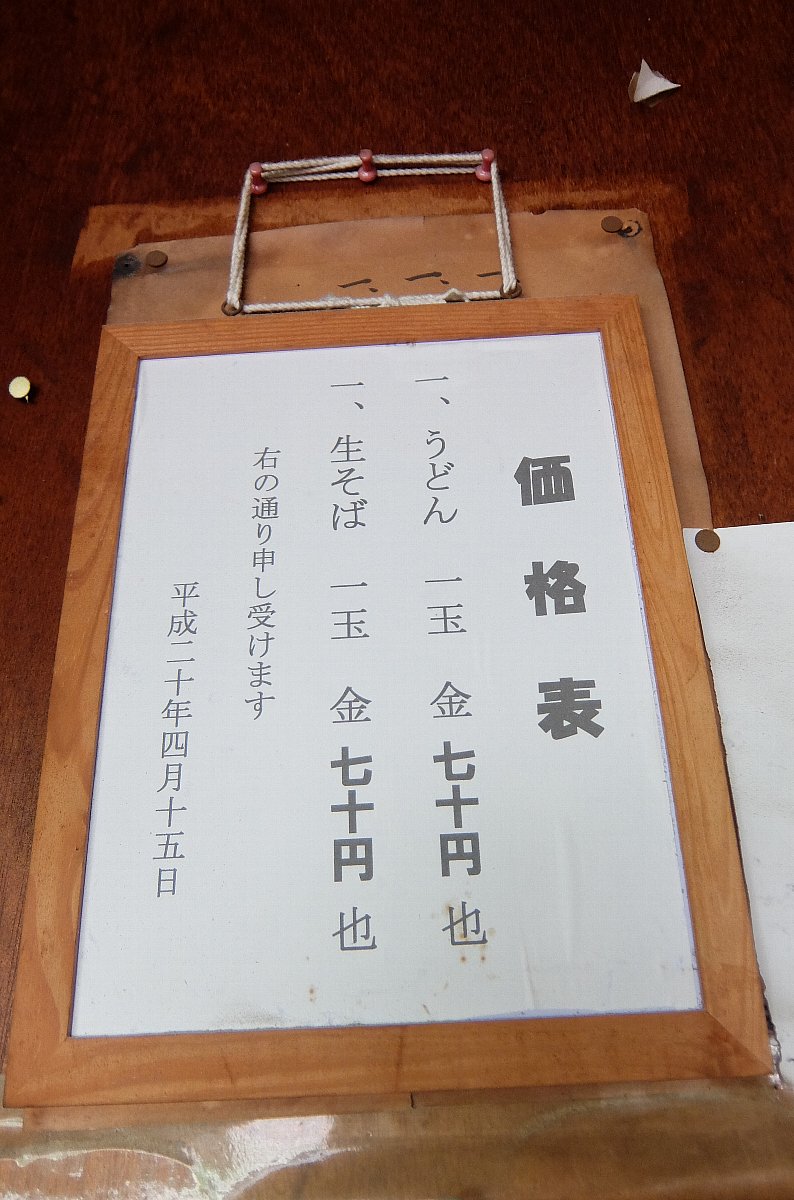 価格表
一、うどん 一玉 金 七十円 也
一、生そば 一玉 金 七十円 也
右の通り申し受けます
平成二十年四月十五日